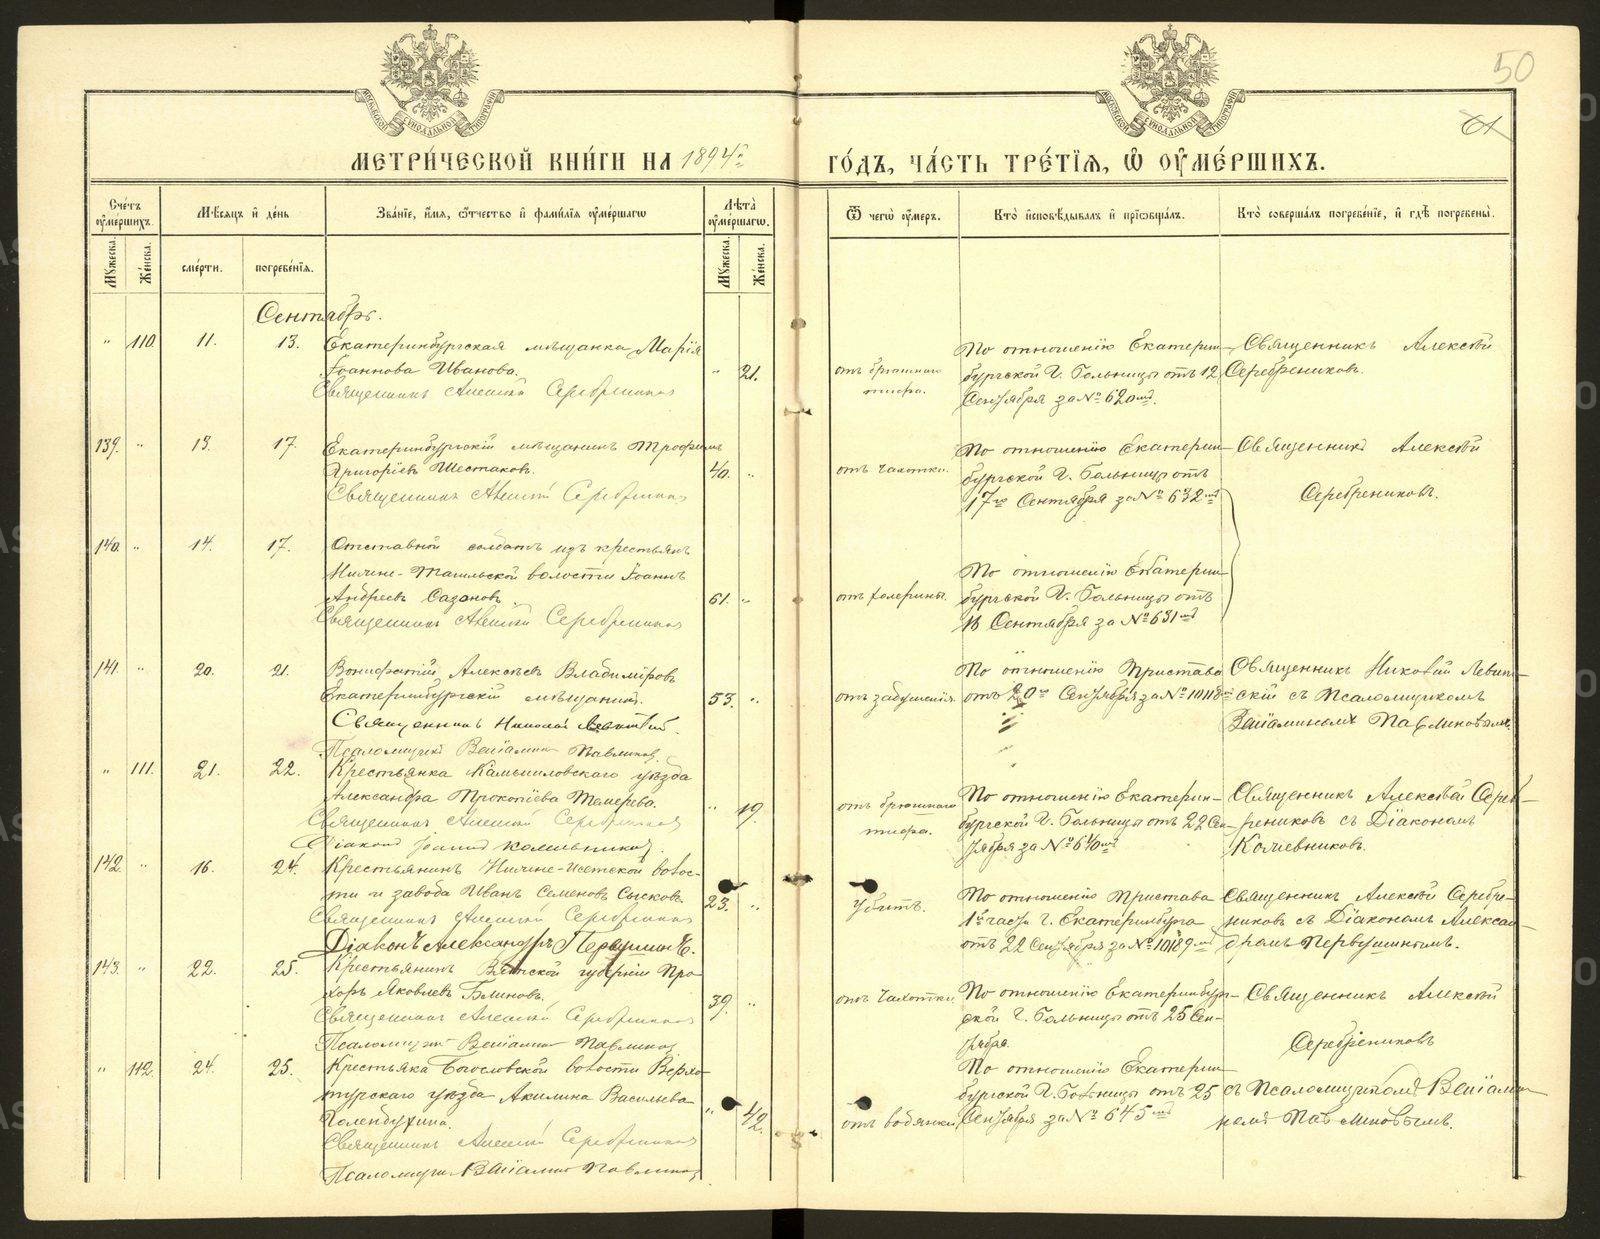 50
61
МОСКОВСКОЙ СУНОДАЛЬНОЙ ТИПОГРАФІИ
МОСКОВСКОЙ СУНОДАЛЬНОЙ ТИПОГРАФІИ
МЕТРИ́ЧЕСКОЙ КНИ́ГИ НА 1894й
ГО́ДЪ, ЧА́СТЬ ТРЕ́ТЇѦ, Ѡ҆ ОУ҆МЕ́РШИХЪ.
Сче́тъ оу҆ме́ршихъ.
Мꙋ́жеска.
Же́нска.
Мѣ́сѧцъ и҆ де́нь
сме́рти.
погребе́нїѧ.
Зва́нїе, и҆́мѧ, ѻ҆́тчество и҆ фами́лїѧ оу҆ме́ршагѡ
Лѣ́та оу҆ме́ршагѡ.
Мꙋ́жеска.
Же́нска.
Ѿ чегѡ̀ оу҆́меръ.
Кто̀ и҆сповѣ́дывалъ и҆ прїѡбща́лъ.
Кто̀ соверша́лъ погребе́нїе, и҆ гдѣ̀ погребены̀.
Сентябрь.
" 110. 11. 13. Екатеринбургская мѣщанка Марія
Іоаннова Иванова. " 21.
Священникъ Алексѣй Серебрениковъ
отъ брюшнаго
тифа.
По отношенію Екатерин-
бургской Г. Больницы отъ 12
Сентября за № 620мъ.
Священникъ Алексѣй
Серебрениковъ.
139. " 15. 17. Екатеринбургскій мѣщанинъ Трофимъ
Григоріевъ Шестаковъ. 40. "
Священникъ Алексѣй Серебрениковъ
отъ чахотки.
По отношенію Екатерин-
бургской Г. Больницы отъ
17го Сентября за № 632мъ
Священникъ Алексѣй
Серебрениковъ.
140. " 14. 17. Отставной солдатъ изъ крестьянъ
Нижне-Тагильской волости Іоаннъ
Андреевъ Сазановъ 61. "
Священникъ Алексѣй Серебрениковъ
отъ холерины.
По отношенію Екатерин-
бургской Г. Больницы отъ
16 Сентября за № 631мъ
141. " 20. 21. Вонифатій Алексѣевъ Владиміровъ
Екатеринбургскій мѣщанинъ. 53. "
Священникъ Николай Левитскій.
Псаломщикъ Веніаминъ Павлиновъ.
отъ задушенія.
По отношенію Пристава
отъ 20го Сентября за № 10118
Священникъ Николай Левит-
скій съ Псаломщикомъ
Веніаминомъ Павлиновымъ.
" 111. 21. 22. Крестьянка Камышловскаго уѣзда
Александра Прокопіева Темерева. " 19.
Священникъ Алексѣй Серебрениковъ
Діаконъ Іоаннъ Колмевниковъ.
отъ брюшнаго
тифа.
По отношенію Екатерин-
бургской Г. Больницы отъ 22 Сен-
тября за № 640мъ
Священникъ Алексѣй Сереб-
рениковъ съ Діакономъ
142. " 16. 24. Крестьянинъ Нижне-Исетской волос-
ти и завода Иванъ Семеновъ Сысковъ. 23. "
Священникъ Алексѣй Серебрениковъ
Діаконъ Александръ Первушинъ.
Убитъ.
По отношенію Пристава
1й части г. Екатеринбурга
отъ 22 Сентября за № 10189мъ
Священникъ Алексѣй Серебре-
никовъ съ Діакономъ Алексан-
дромъ Первушинымъ.
143. " 22. 25. Крестьянинъ Вятской губерніи Про-
хоръ Яковлевъ Блиновъ. 39. "
Священникъ Алексѣй Серебрениковъ
Псаломщикъ Веніаминъ Павлиновъ
отъ чахотки
По отношенію Екатеринбург-
ской Г. Больницы отъ 25 Сен-
тября.
Священникъ Алексѣй
Серебрениковъ
" 112. 24. 25. Крестьяка Богословской волости Верхо-
турскаго уѣзда Акилина Васильева
" 42.
Священникъ Алексѣй Серебрениковъ
Псаломщикъ Веніаминъ Павлиновъ
отъ водянки
По отношенію Екатерин-
бургской Г. Больницы отъ 25
Сентября за № 645мъ
съ Псаломщикомъ Веніами-
номъ Павлиновымъ.